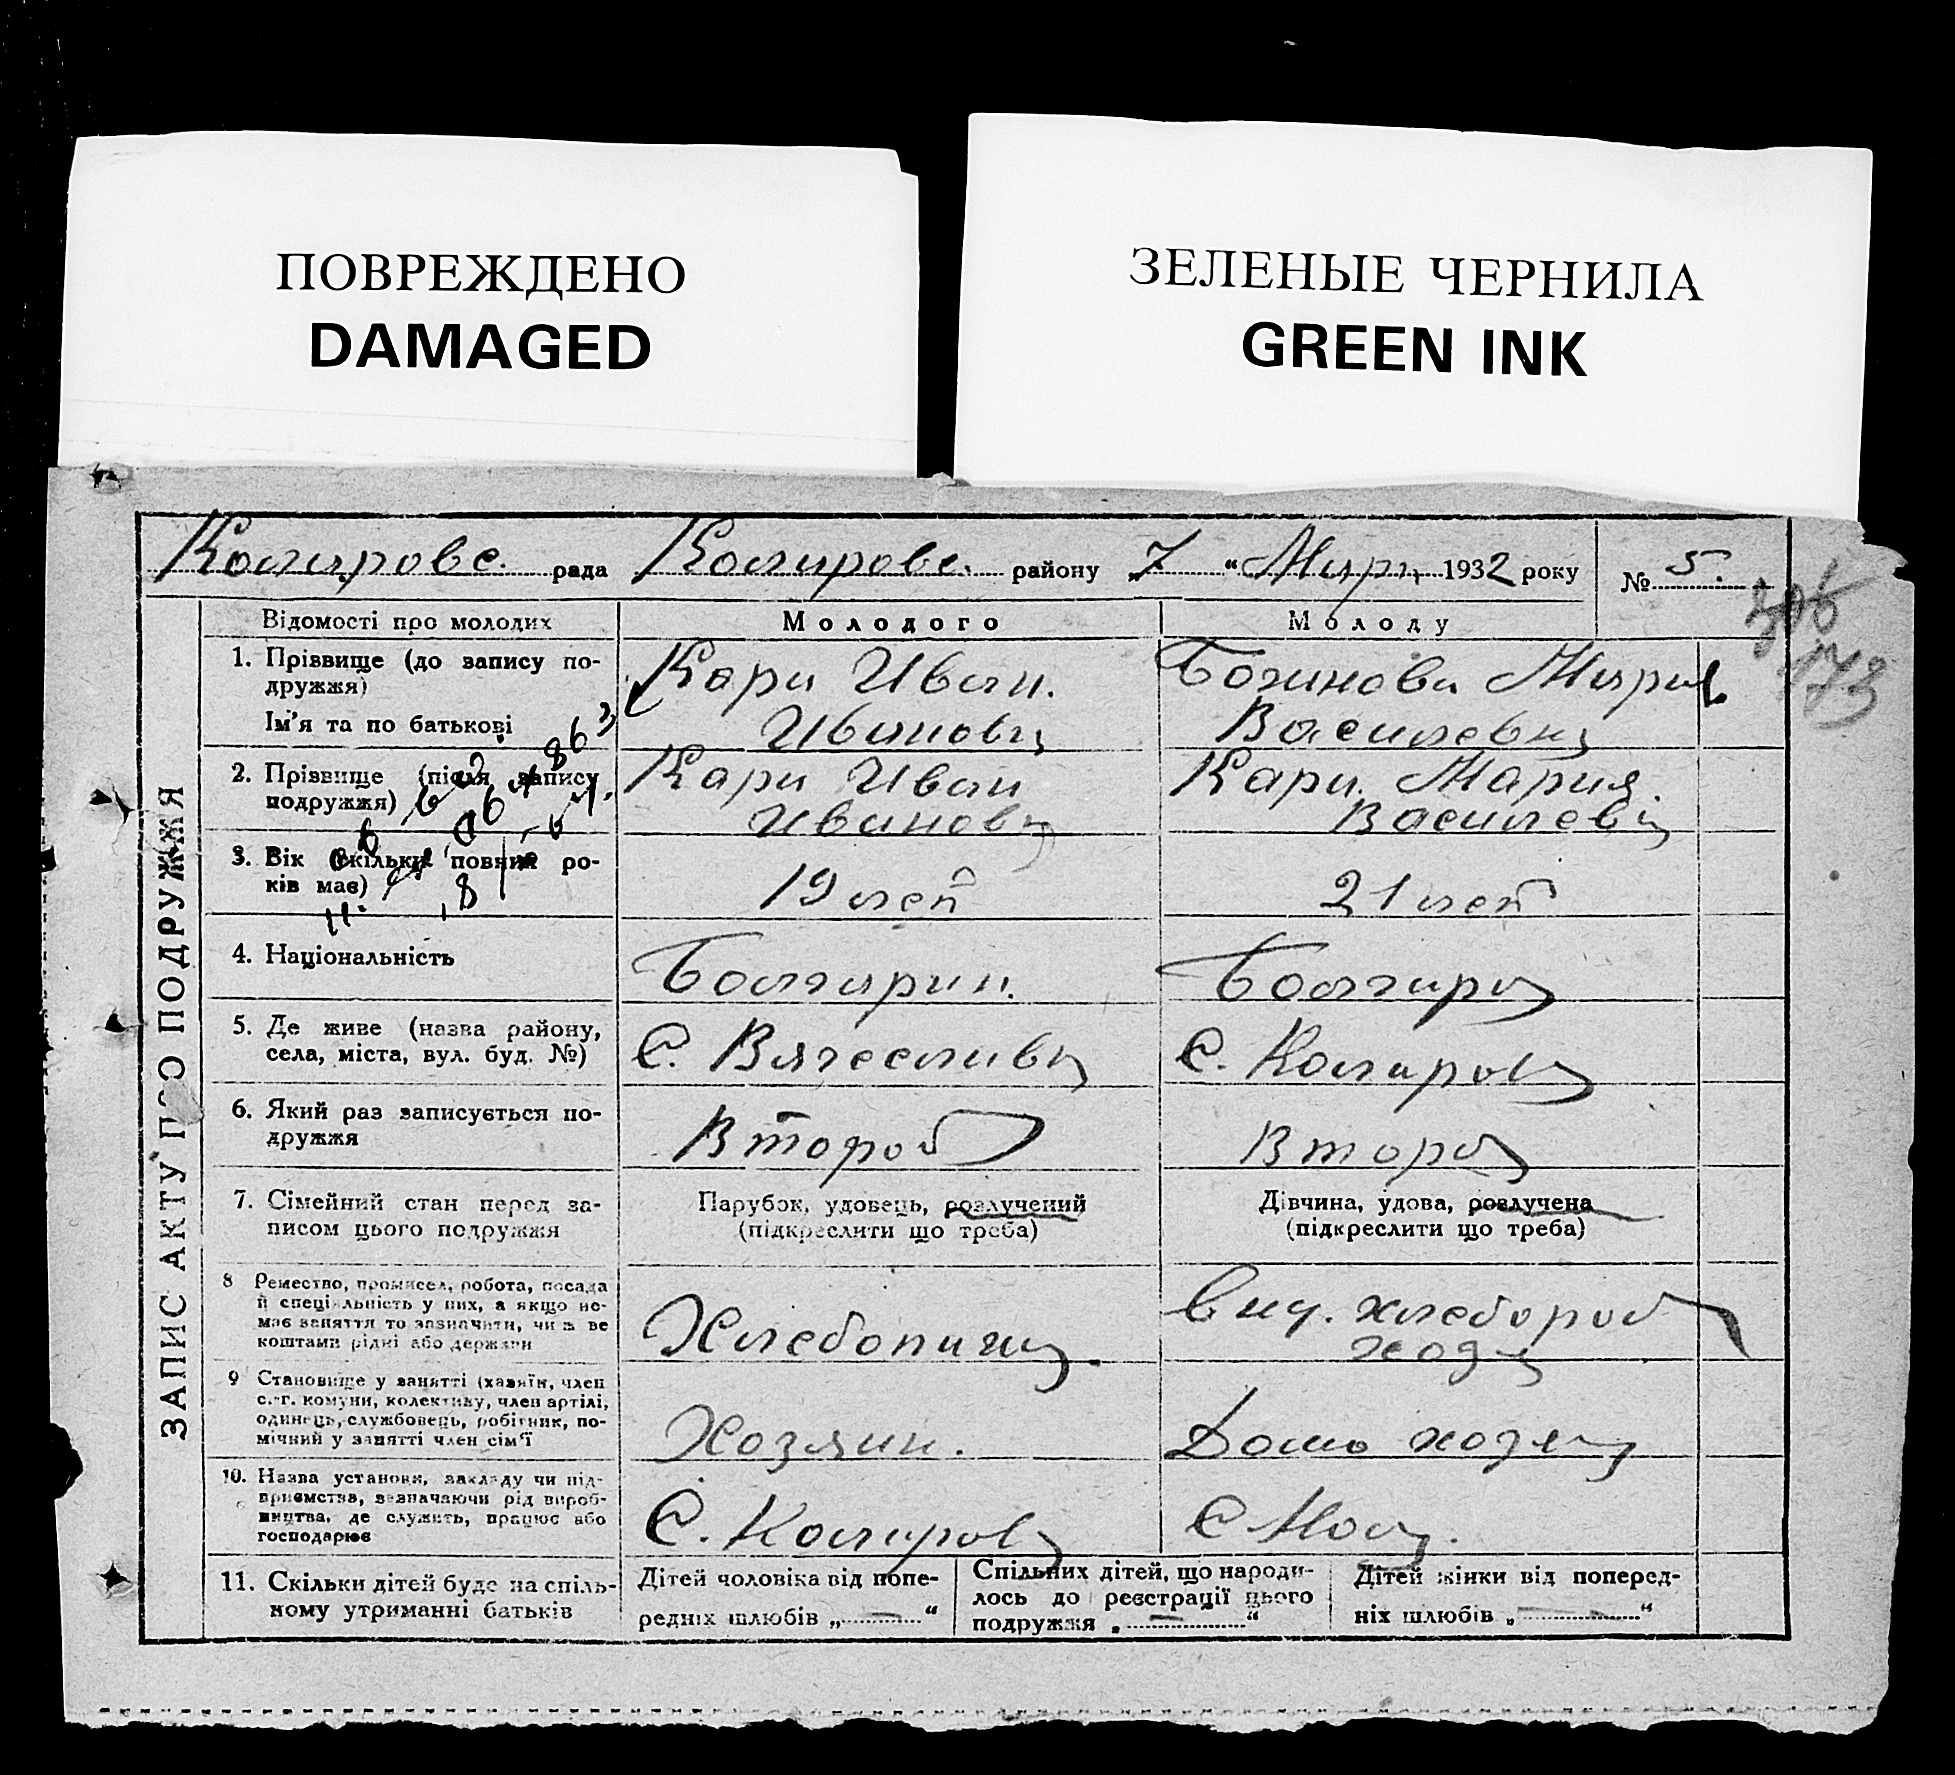 ПОВРЕЖДЕНО
DAMAGED
ЗЕЛЕНЫЕ ЧЕРНИЛА
GREEN INK
Коларовс. рада Коларовс. району „7“ Мар 1932 року № 5.
173
ЗАПИС АКТУ ПРО ПОДРУЖЖЯ
Відомості про молодих Молодого Молоду
1. Прізвище (до запису по-
дружжя)
Ім'я та по батькові
Кара Иван.
Иванович
Божинова Мария
Василевна
2. Прізвище (після запису
подружжя)
Кара Иван
Иванович
Кара. Мария.
Василевна
3. Вік (скільки повних ро-
ків має)
19 лет
21 лет
4. Національність
Болгарин.
Болгарка
5. Де живе (назва району,
села, міста, вул. буд. №)
С. Вячеславка
С. Коларовка
6. Який раз записується по-
дружжя
Второй
Второй
7. Сімейний стан перед за-
писом цього подружжя
Парубок, удовець, розлучений
(підкреслити що треба)
Дівчина, удова, розлучена
(підкреслити що треба)
8 Ремество, промисел, робота, посада
й спеціяльність у них, а якщо не-
має заняття то зазначити, чи з ве
коштами рідні або держави
Хлебопашец.
хлебороб
9 Становище у занятті (хазяїн, член
с.-г. комуни, колективу, член артілі,
одинець, службовець, робітник, по-
мічний у занятті член сім'ї
Хозяин.
Домо хозяйка
10. Назва установи, закладу чи під-
приємства, зазначаючи рід вироб-
ництва, де служить, працює або
господарює
С. Коларовка
С
11. Скільки дітей буде на спіль-
ному утриманні батьків
Дітей чоловіка від попе-
редніх шлюбів „—“
Спільних дітей, що народи-
лось до реєстрації цього
подружжя „—“
Дітей жінки від поперед-
ніх шлюбів „—“